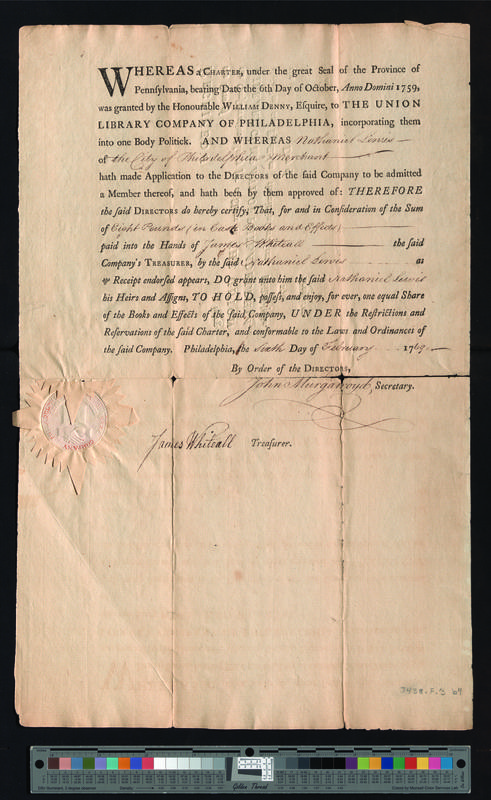 WHEREAS a CHARTER, under the great Seal of the Province of
Pennsylvania, bearing Date the 6th Day of October, Anno Domini 1759,
was granted by the Honourable WILLIAM DENNY, Esquire, to THE UNION
LIBRARY COMPANY OF PHILADELPHIA, incorporating them
into one Body Politick. AND WHEREAS Nathaniel Lewis
of the City of Philadelphia Merchant
hath made Application to the DIRECTORS of the said Company to be admitted
a Member thereof, and hath been by them approved of: THEREFORE
the said DIRECTORS do hereby certify, That, for and in Consideration of the Sum
of Eight Pounds (in Cash Books and Effects)
paid into the Hands of James Whiteall the said
Company's TREASURER, by the said Nathaniel Lewis as
Receipt endorsed appears, DO grant unto him the said Nathaniel Lewis
his Heirs and Assigns, TO HOLD, possess, and enjoy, for ever, one equal Share
of the Books and Effects of the said Company, UNDER the Restrictions and
Reservations of the said Charter, and conformable to the Laws and Ordinances of
the said Company. Philadelphia, the Sixth Day of February 1769
By Order of the DIRECTORS,
John Murgatroyd, Secretary.
James Whiteall Treasurer.
3438.F.3 69
Golden Thread